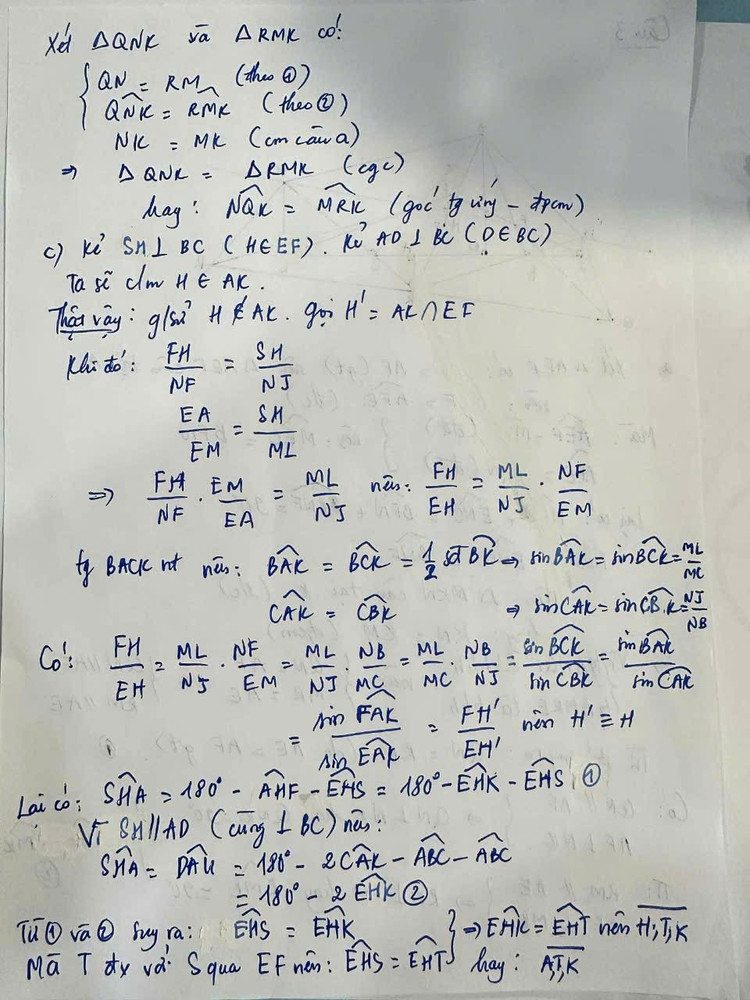 Xét ΔQNK và ΔRMK có:
QN = RM (theo ①)
∠QNK = ∠RMK (theo ②)
NK = MK (cm câu a)
⇒ ΔQNK = ΔRMK (cgc)
hay: ∠NQK = ∠MRK (góc tg ứng - đpcm)
c) Kẻ SH ⊥ BC (H ∈ EF). Kẻ AD ⊥ BC (D ∈ BC)
Ta sẽ c/m H ∈ AK.
Thật vậy: g/sử H ∉ AK. gọi H' = AK ∩ EF
Khi đó: FH/NF = SH/NJ
EA/EM = SH/ML
⇒ FH/NF . EM/EA = ML/NJ nên: FH/EH = ML/NJ . NF/EM
tg BACK nt nên: ∠BAK = ∠BCK = 1/2 sđ BK ⇒ sin BAK = sin BCK = ML/MC
∠CAK = ∠CBK ⇒ sin CAK = sin CBK = NJ/NB
Có: FH/EH = ML/NJ . NF/EM = ML/NJ . NB/MC = ML/MC . NB/NJ = sin BCK/sin CBK = sin BAK/sin CAK
= sin FAK/sin EAK = FH'/EH' nên H' ≡ H
Lại có: ∠SHA = 180° - ∠AHF - ∠EHS = 180° - ∠EHK - ∠EHS ①
Vì SH // AD (cùng ⊥ BC) nên:
∠SHA = ∠DAH = 180° - 2∠CAK - ∠ABC - ∠ABC
= 180° - 2∠EHK ②
Từ ① và ② suy ra: ∠EHS = ∠EHK
Mà T đx với S qua EF nên: ∠EHS = ∠EHT } ⇒ ∠EHK = ∠EHT nên H,T,K
hay: A,T,K